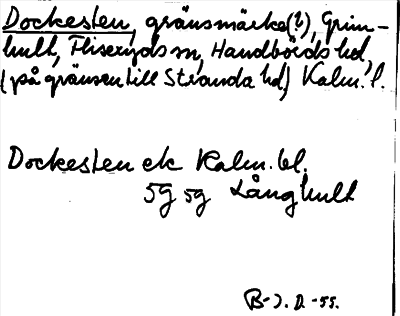 Dockesten, gränsmärke(?), Grim-
hult, Fliseryds sn, Handbörds hd,
(på gränsen till Stranda hd) Kalm. l.
Dockesten ek Kalm. bl.
5g 5g Långhult